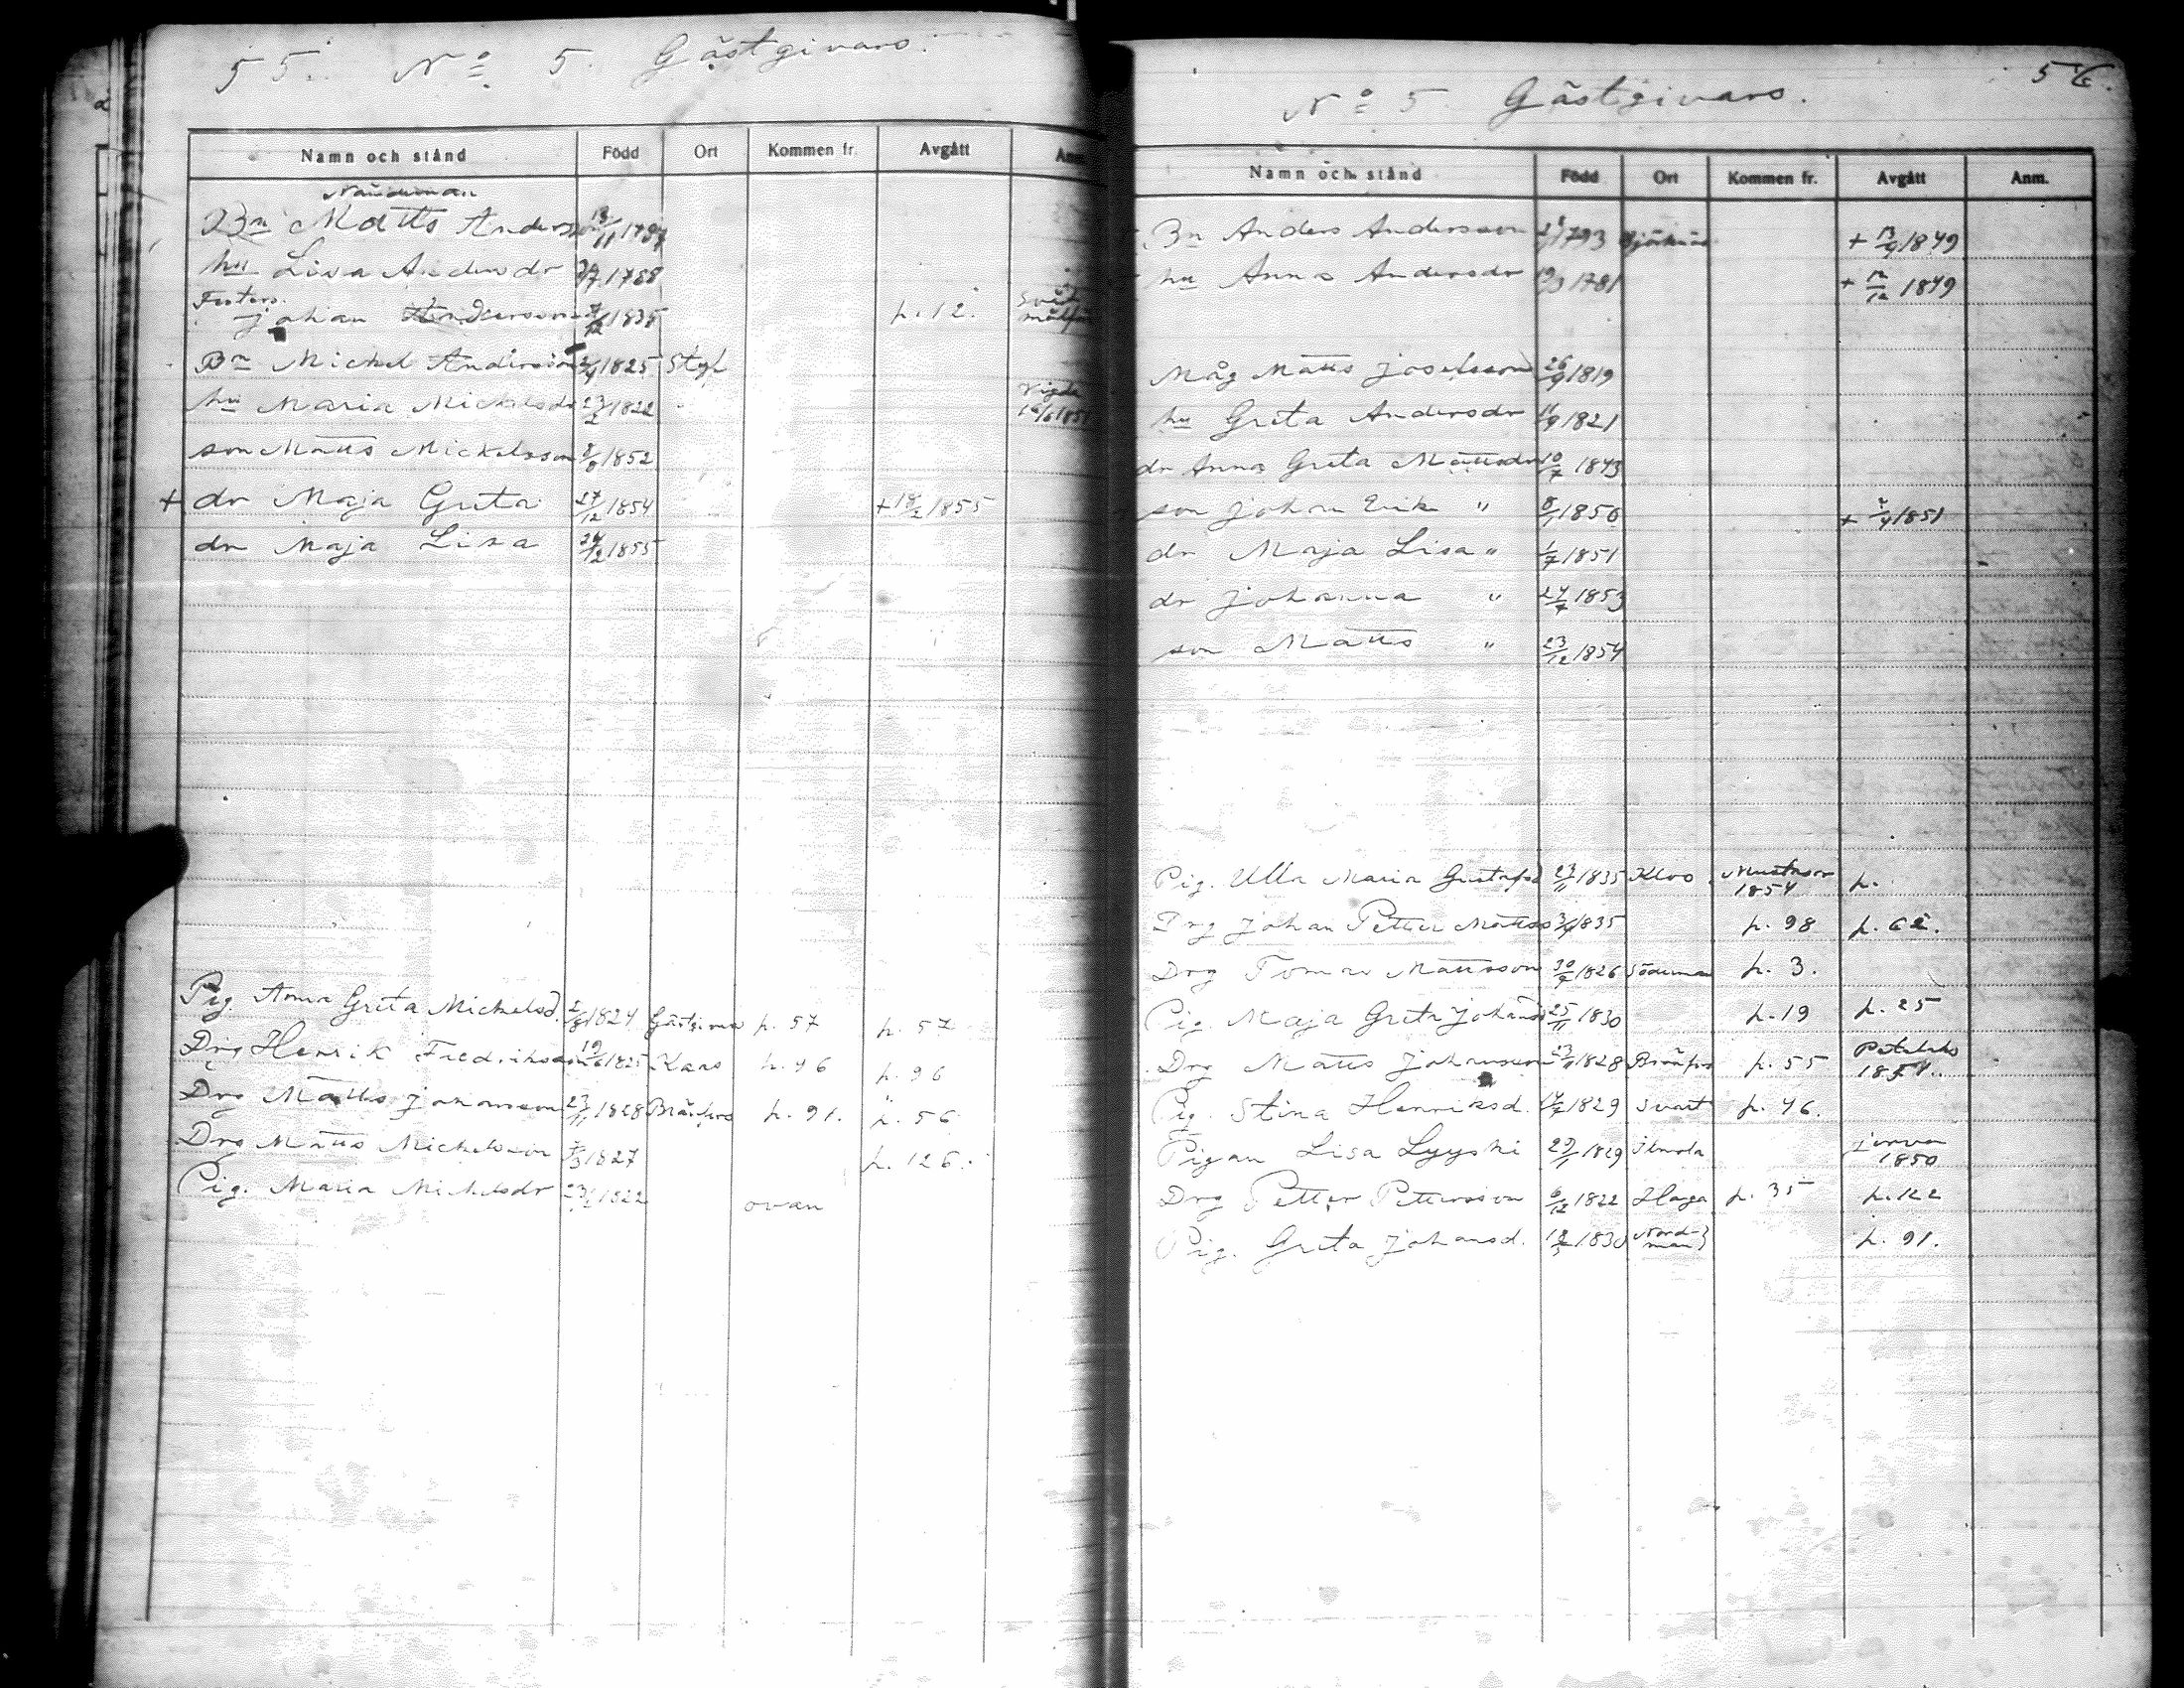 55. No 5. Gästgivars.
Namn och stånd Född Ort Kommen fr. Avgått Anm.
Nämndeman
Bn Matts Andersson 13/11 1787
hu Lisa Andersdr 1788
Fosters.
Johan Andersson 7/12 1835 p. 12.
Bn Mickel Andersson 1825
hu Maria Mickelsdr 23/2 1822 Vigda 1851
son Matts Mickelsson 1852
+ dr Maja Greta 27/12 1854 + 18/2 1855
dr Maja Lisa 24/12 1855
Pig. Anna Greta Mickelsd. 1824 Gästgivars p. 57 p. 57
Drg Henrik Fredriksson 19/6 1825 Kars p. 96 p. 96
Drg Matts Johansson 23/11 1828 Bränfors p. 91. p. 56
Drg Matts Mickelsson 1827 p. 126.
Pig. Maria Mickelsdr 23/2 1822 ovan
56.
No 5 Gästgivars.
Namn och stånd Född Ort Kommen fr. Avgått Anm.
Bn Anders Andersson 1793 + 13/9 1849
hu Anna Andersdr 1781 + 12/12 1849
Måg Matts Josefsson 26/9 1819
hu Greta Andersdr 1821
dr Anna Greta Mattsdr 10/7 1843
son Johan Erik " 8/1 1850 + 1851
dr Maja Lisa " 1/7 1851
dr Johanna " 24/7 1853
son Matts " 23/12 1854
Pig. Ulla Maria Gustafsd 23/11 1835 Klvo Mustasar 1854 p.
Drg Johan Petter Mattss 1835 p. 98 p. 62.
Drg Tomas Mattsson 30/9 1826 Söderman p. 3.
Pig. Maja Greta Johansd 25/11 1830 p. 19 p. 25
Drg Matts Johansson 23/11 1828 Bränfors p. 55 Petalaks 1854.
Pig. Stina Henriksd. 1829 Svart p. 46.
Pigan Lisa Lyyski 29/1 1829 Ilmola Jurva 1850
Drg Petter Pettersson 6/12 1822 Haga p. 35 p. 122
Pig. Greta Johansd. 1830 Nordman p. 91.